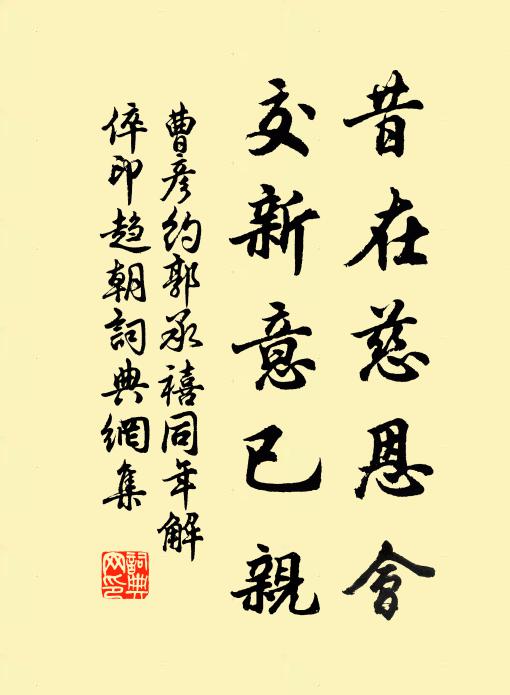 昔在慈恩會
交新意已親
曹彥約郭承禧同年解
倅印趨朝詞典網集
詞典網印